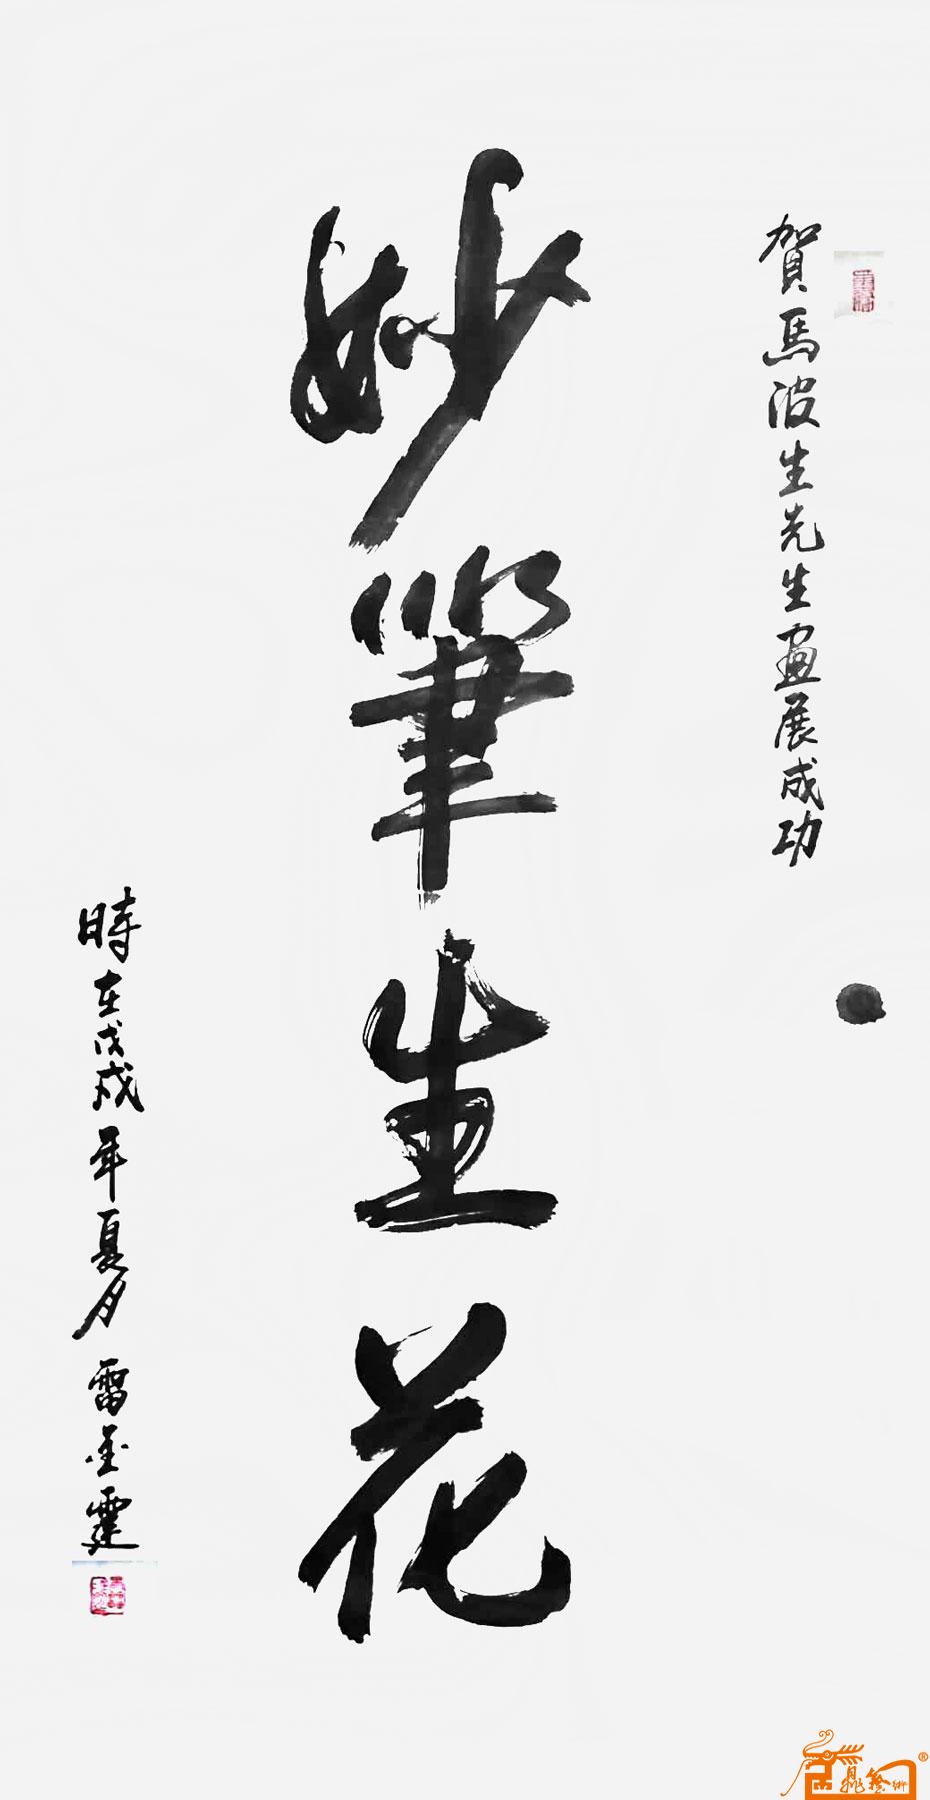 賀馬波生先生畫展成功
妙筆生花
時在戊戌年夏月 雷金霆